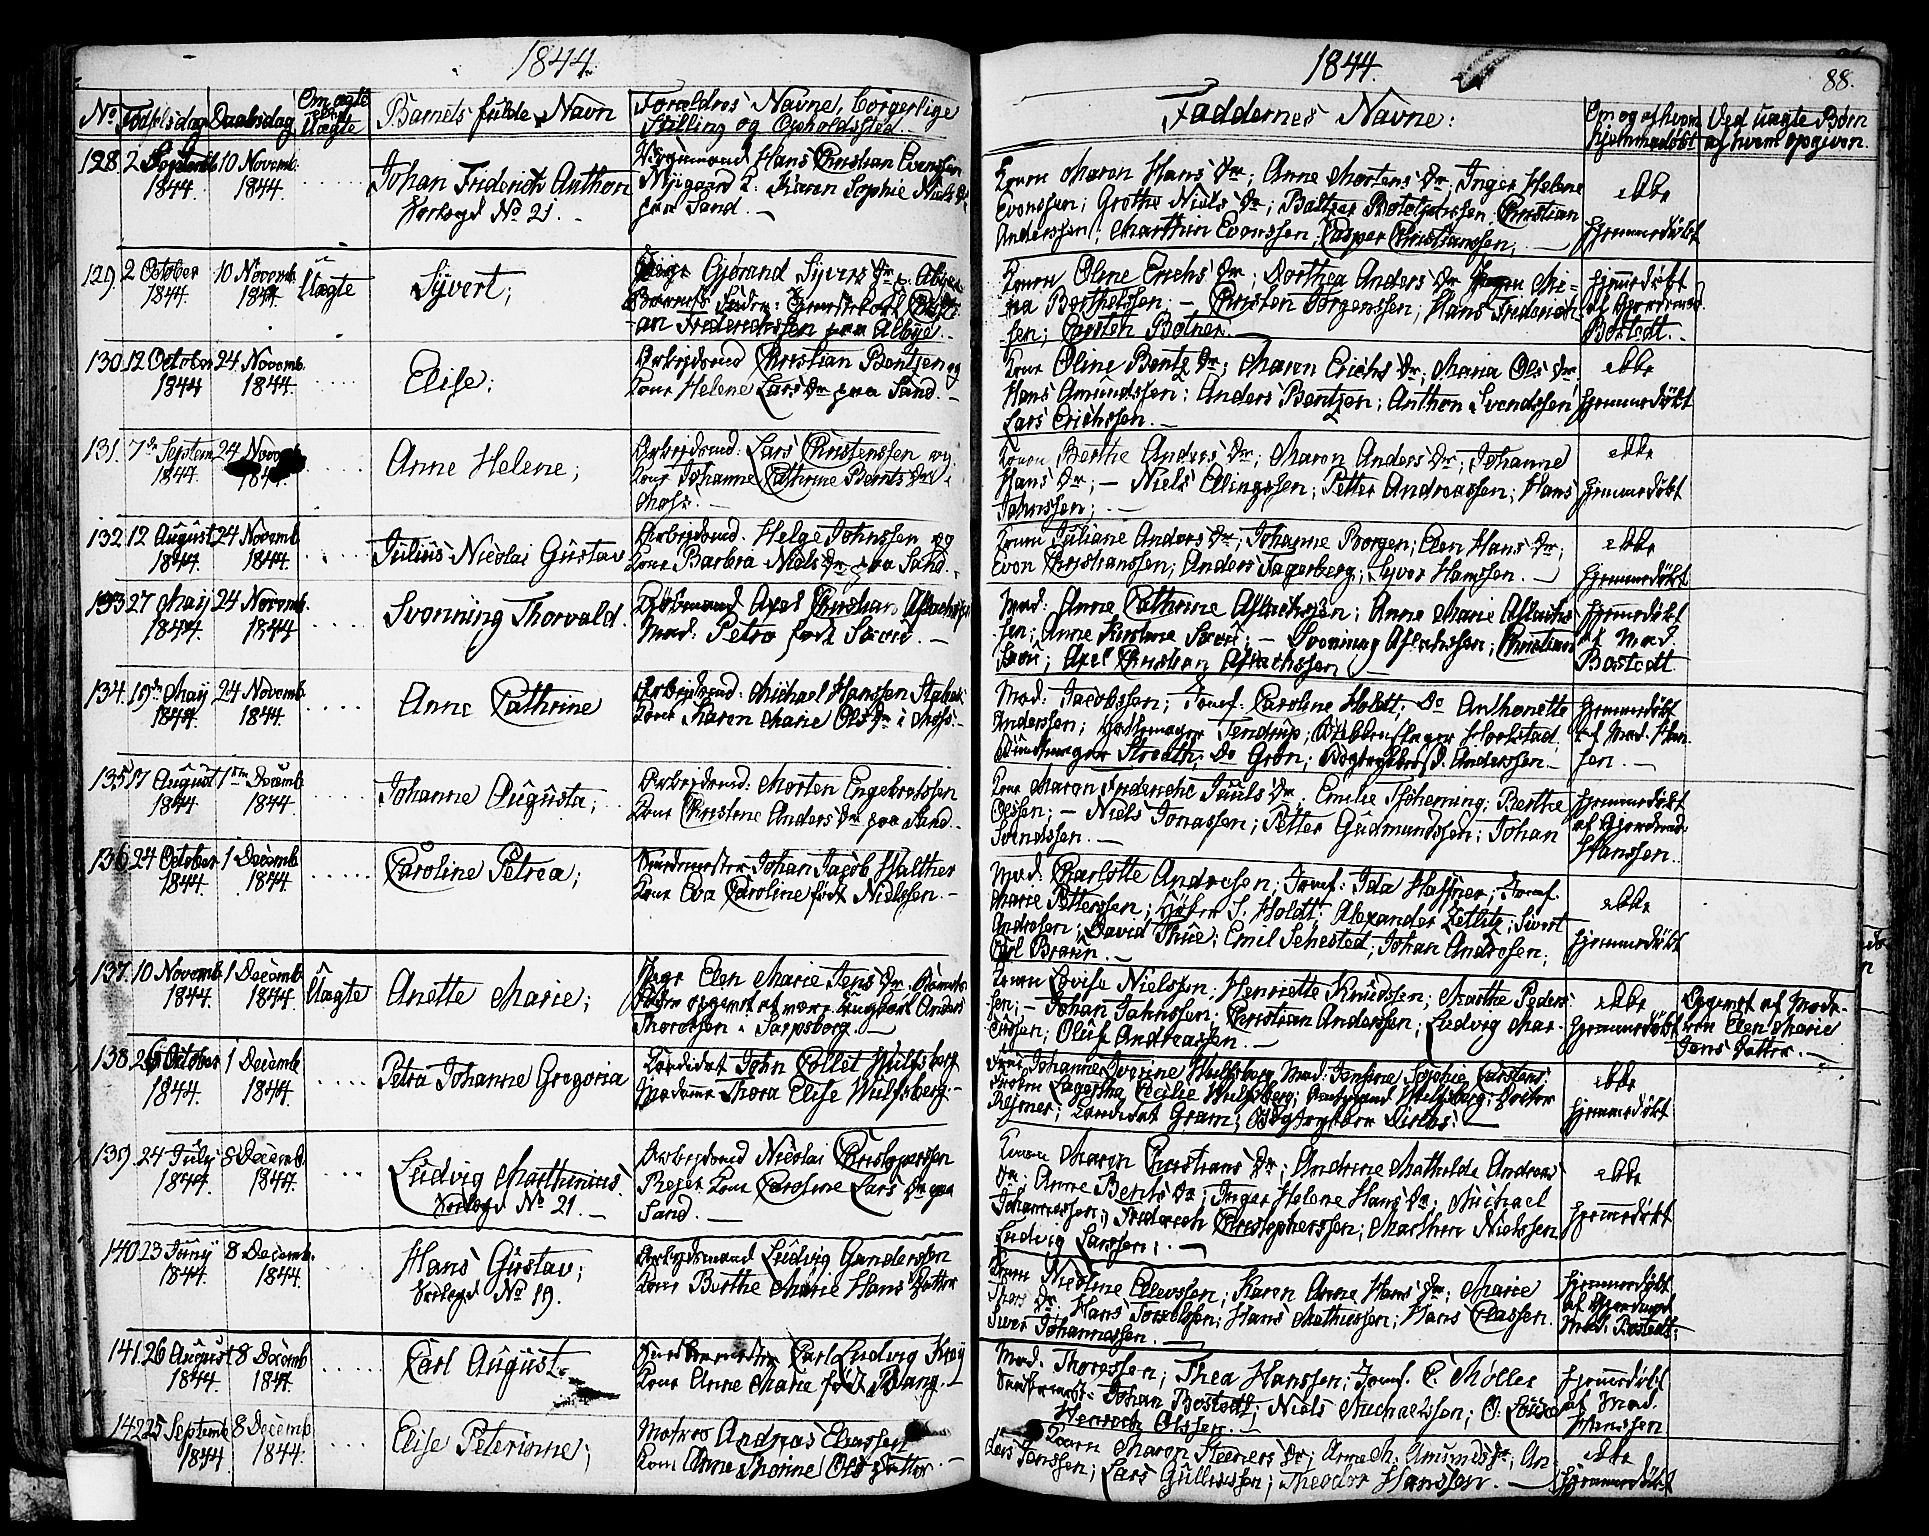 1844.
No Fødselsdag Daabsdag Om ægte eller Uægte Barnets fulde Navn Forældres Navne, borgerlige
Stilling og Opholdssted.
128. 2 Septemb 1844. 10 Novemb. 1844. Johan Friderich Anthon
Hans Christian Evenssen
Sophie Niels Dr
paa Sand.
129. 2 October 1844. 10 Novemb. 1844. Uægte Syvert;
Pige Gjørand Syvers Dr
Christi-
an Frederichssen paa Albye.
130. 12 October 1844 24 Novemb. 1844. Elise;
Arbejdsmd Christian Bentzen og
Kone Helene Lars Dr paa Sand.
131. 7de Septem 1844. 24 Novemb 1844. Anne Helene;
Arbejdsmd: Lars Christenssen og
Kone Johanne Cathrine Bernts Dr i
Moss.
132. 12 August 1844. 24 Novemb. 1844. Julius Nicolai Gustav
Arbejdsmd. Helge Johnssen og
Kone Barbra Niels Dr paa Sand.
133. 27 Maij 1844. 24 Novemb. 1844 Svenning Thorvald.
Axel Christian Aslachssen
Mad: Petra født
134. 19de Maij 1844. 24 Novemb. 1844. Anne Cathrine
Arbejdsmd: Michael Hanssen
Kone Maren Marie Ols Dr i Moss.
135. 17 August 1844 1ste Decemb. 1844. Johanne Augusta;
Arbejdsmd: Morten Engebretssen
Kone Christene Anders Dr paa Sand.
136. 24 October 1844. 1 Decemb 1844. Caroline Petrea;
Johan Jacob Halther
Kone Eva Caroline født Nielssen.
137. 10 Novemb 1844. 1 Decemb. 1844. Uægte Anette Marie;
Pige Elen Marie Jens Dr
opgivet at være Ungkarl Anders
Thoressen i Sarpsborg.
138. 26 October 1844. 1 Decemb 1844. Petra Johanne Gregoria
Kandidat John Collet Wulfsberg
Madame Thora Elise Wulfsberg.
139. 24 July 1844. 8 Decemb. 1844. Ludvig Marthinius.
No 21.
Arbejdsmd Nicolai Christopherssen
Kone Caroline Lars Dr paa
Sand.
140. 23 Juny 1844. 8 Decemb. 1844. Hans Gustav;
No 19.
Arbejdsmand Ludvig Gunderssen
Kone Berthe Marie Hans Datter
141. 26 August 1844. 8 Decemb 1844. Carl August
Carl Ludvig
Kone Anne Marie født Bang.
142. 25 Septemb 1844 8 Decemb 1844. Elise Peterinne;
Matros Andreas Eliassen
Kone Anne Thorine Ols Datter.
1844.
88.
Faddernes Navne: Om og af hvem hjemmedøbt Ved uægte Børn af hvem opgiven.
Konen Maren Hans Dr; Anne Mortens Dr; Inger Helene
Evenssen; Grethe Niels Dr; Christian
Anderssen; Marthin Evenssen; Casper Christianssen;
ikke hjemmedøbt
Konen Oline Erichs Dr; Dorthea Anders Dr
Berthelssen; Christen Jørgenssen; Hans Friderich-
sen; Carsten Botner.
hjemmedøbt af Gjordemod. Bostedt.
Kone Oline Bentz Dr; Maren Erichs Dr; Maria Ols Dr
Hans Amundssen; Anders Bentzen; Anthon Svendssen
Lars Erichssen.
ikke hjemmedøbt
Konen Berthe Anders Dr; Maren Anders Dr; Johanne
Hans Dr; Niels Ellingssen; Petter Andreassen; Hans
Johnssen;
ikke hjemmedøbt
Konen Juliane Anders Dr; Johanne Borgen; Elen Hans Dr;
Even Christianssen; Anders Fagerberg; Syver Hanssen.
ikke hjemmedøbt
Mad: Anne Cathrine Aslachssen; Anne Marie Aslachs-
sen; Anne Kirstine; Svenning Aslachssen; Christian
Axel Christian Aslachssen
hjemmedøbt af Mad Bostedt
Mad: Jacobssen; Jomf. Caroline Holdt; Do Anthonette
Anderssen; Tendrup; Horkstad;
Do Grøn; Anderssen.
hjemmedøbt af Mad. Han-
sen.
Kone Maren Friderichs Juuls Dr; Emilie Berthe
Olssen; Niels Jonassen; Petter Gudmundssen; Johan
Svendssen.
hjemmedøbt af Gjordemod Hanssen.
Mad. Charlotte Andresen; Jomf: Ida Haffner; Jomf.
Marie Petterssen; S. Holdt; Alexander Zetlitz; Sivert
Andresen; David Thue; Emil Sehested; Johan Andresen;
Carl Braun.
ikke hjemmedøbt
Konen Lovise Nielssen; Henriette Knudssen; Marthe Peders-
sen; Johan Jahnssen; Christian Anderssen; Ludvig Mar-
cussen; Oluf Andreassen.
ikke hjemmedøbt
Opgivet af Mode-
ren Elen Marie
Jens Datter.
Fru Johanne Wulfsberg Mad: Jensine Sophie Carstens;
Frøken Lagertha Cecilie Wulfsberg; Wulfsberg;
Kandidat Gram;
ikke hjemmedøbt
Konen Maren Christians Dr; Andrine Mathilde Andreas
Dr; Anne Bernts Dr; Inger Helene Hans Dr; Michael
Johannessen; Friderich Christopherssen; Marthin Nielssen
Ludvig Larssen;
ikke hjemmedøbt
Konen Nicoline Ellevssen; Karen Anne Hans Dr; Marie
Thors Dr; Hans Torkelssen; Hans Mathiessen; Hans Classen.
Siver Johannessen.
hjemmedøbt af Gjordemod Mad: Bostedt:
Mad. Thoressen; Thea Hanssen; Jomf. C. Møller
Johan Bostedt; Niels Michaelssen; O. Louise
Henrich Olssen.
hjemmedøbt af Mad. Hanssen
Konen Maren Steeners Dr; Anne M. Amunds Dr; An-
ders Jenssen; Lars Gullicssen; Theodor Hanssen.
ikke hjemmedøbt